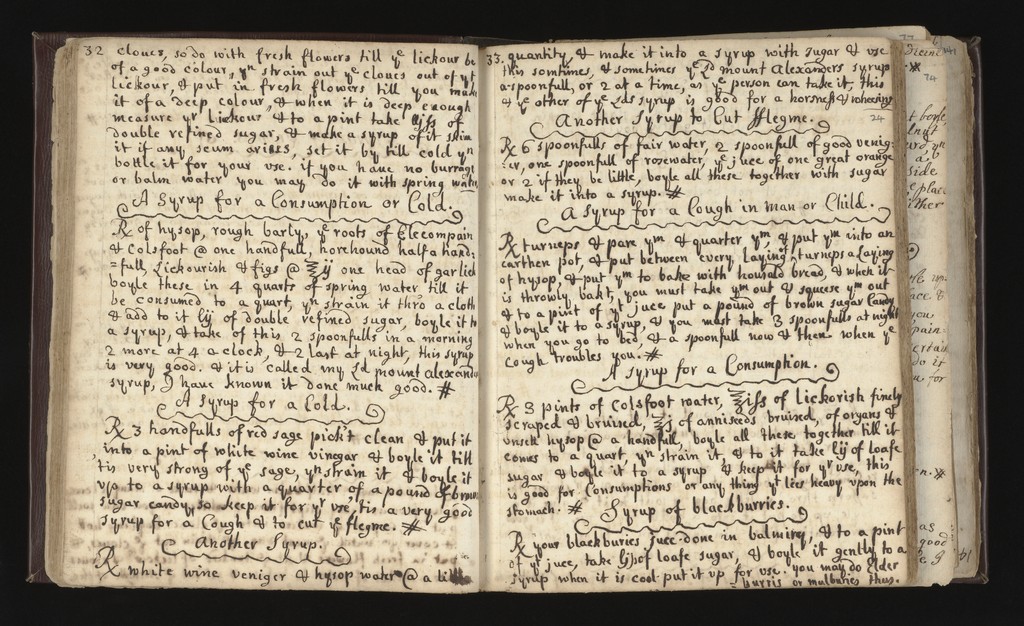 32 cloves, so do with fresh flowers till yᵉ lickour be
of a good colour, yⁿ strain out yᵉ cloves out of yᵗ
lickour, & put in fresh flowers till you make
it of a deep colour, & when it is deep enough
measure yʳ lickour & to a pint take of
double refined sugar, & make a syrup of it skim
it if any scum arises, set it by till cold yⁿ
bottle it for your use. if you have no burrage
or balm water you may do it with spring water
A Syrup for a Consumption or Cold.
℞ of hysop, rough barly, yᵉ roots of Elecompain
& Colsfoot @ one handfull, horehound half a hand:
=full, Lickourish & figs @ ℥ij one head of garlick
boyle these in 4 quarts of spring water till it
be consumed to a quart, yⁿ strain it thrō a cloth
& add to it lij of double refined sugar, boyle it to
a syrup, & take of this 2 spoonfulls in a morning
2 more at 4 a clock, & 2 last at night, this syrup
is very good. & it is called my Lᵈ mount alexand
syrup, I have known it done much good. #
A Syrup for a Cold.
℞ 3 handfulls of red sage pick't clean & put it
into a pint of white wine vinegar & boyle it till
tis very strong of yᵉ sage, yⁿ strain it & boyle it
up to a syrup with a quarter of a pound of brown
sugar candy, so keep it for yʳ use, tis a very good
syrup for a Cough & to cut yᵉ flegme. #
Another Syrup.
℞ white wine veniger & hysop water @ a little
33. quantity, & make it into a syrup with sugar & use
this somtimes, & sometimes yᵉ Lᵈ mount Alexanders syrup
a spoonfull, or 2 at a time, as yᵉ person can take it, this
& yᵉ other of yᵉ Lds syrup is good for a horsness & wheesing
24
Another Syrup to Cut fflegme.
℞ 6 spoonfulls of fair water, 2 spoonfull of good venig:
:er, one spoonfull of rosewater, yᵉ juce of one great orange
or 2 if they be little, boyle all these together with sugar
make it into a syrup. #
A Syrup for a Cough in man or Child.
℞ turneps & pare yᵐ & quarter yᵐ, & put yᵐ into an
earthen pot, & put between every laying turneps a Laying
of hysop, & put yᵐ to bake with houshald bread, & when it
is throwly bakt, you must take yᵐ out & squese yᵐ out
& to a pint of yᵉ juce put a pound of brown sugar Candy
& boyle it to a syrup, & you must take 3 spoonfulls at night
when you go to bed, & a spoonfull now & then when yᵉ
Cough troubles you. #
A Syrup for a Consumption.
℞ 3 pints of Colsfoot water, ℥ifs of Lickorish finely
scraped & bruised, ℥j of anniseeds bruised, of organs &
unsett hysop @ a handfull, boyle all these together till it
comes to a quart, yⁿ strain it, & to it take lij of loafe
sugar & boyle it to a syrup & keep it for yʳ use, this
is good for Consumptions or any thing yᵗ lies heavy upon the
stomach. #
Syrup of blackburries.
℞ your blackburies juce done in balmiry, & to a pint
of yᵉ juce, take of loafe sugar, & boyle it gently to a
syrup when it is cool put it up for use. you may do Elder
burris or mulburies thus.
74
side
you
do it
good